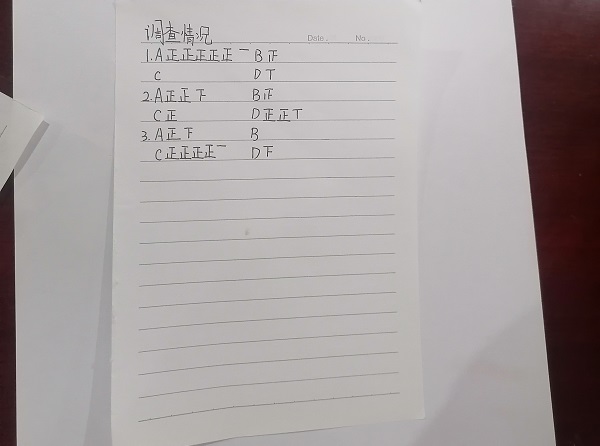 调查情况
Date. No.
1. A 正正正正正一 B 正
C D T
2. A 正正下 B 正
C 正 D 正正T
3. A 正下 B
C 正正正正一 D 下